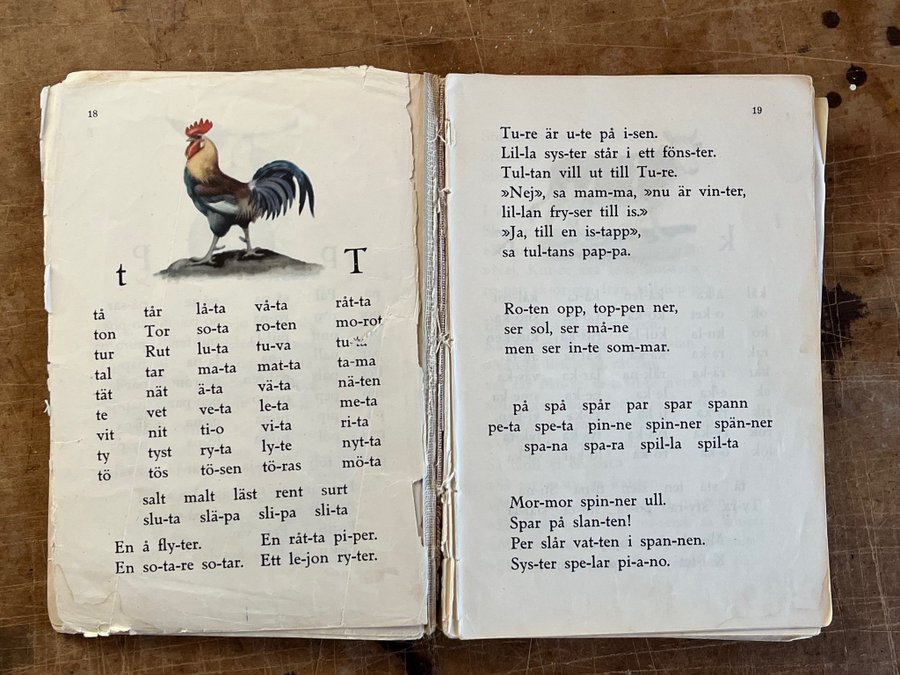 18
t T
tå tår lå-ta vå-ta råt-ta
ton Tor so-ta ro-ten mo-rot
tur Rut lu-ta tu-va
tal tar ma-ta mat-ta ta-ma
tät nät ä-ta vä-ta nä-ten
te vet ve-ta le-ta me-ta
vit nit ti-o vi-ta ri-ta
ty tyst ry-ta ly-te nyt-ta
tö tös tö-sen tö-ras mö-ta
salt malt läst rent surt
slu-ta slä-pa sli-pa sli-ta
En å fly-ter. En råt-ta pi-per.
En so-ta-re so-tar. Ett le-jon ry-ter.
19
Tu-re är u-te på i-sen.
Lil-la sys-ter står i ett föns-ter.
Tul-tan vill ut till Tu-re.
»Nej», sa mam-ma, »nu är vin-ter,
lil-lan fry-ser till is.»
»Ja, till en is-tapp»,
sa tul-tans pap-pa.
Ro-ten opp, top-pen ner,
ser sol, ser må-ne
men ser in-te som-mar.
på spå spår par spar spann
pe-ta spe-ta pin-ne spin-ner spän-ner
spa-na spa-ra spil-la spil-ta
Mor-mor spin-ner ull.
Spar på slan-ten!
Per slår vat-ten i span-nen.
Sys-ter spe-lar pi-a-no.